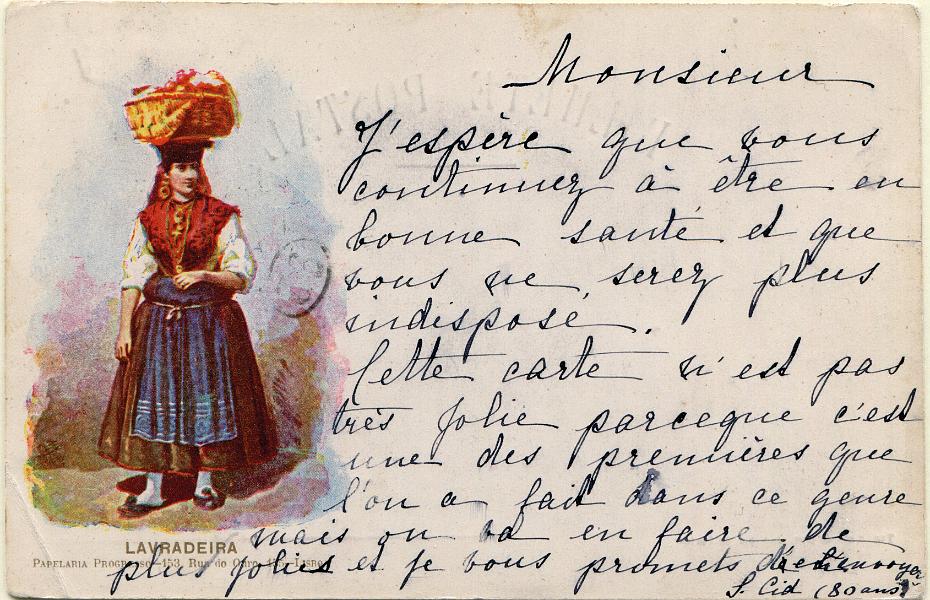 Monsieur
J'espère que vous
continuez à être en
bonne santé et que
vous ne serez plus
indisposé.
Cette carte n'est pas
très jolie parceque c'est
une des premières que
l'on a fait dans ce genre
mais on va en faire de
plus jolies et je vous promets d'envoyer
S. Cid (80 ans)
LAVRADEIRA
PAPELARIA PROGRESSO-153, Rua do Ouro, LISBOA
BILHETE POSTAL